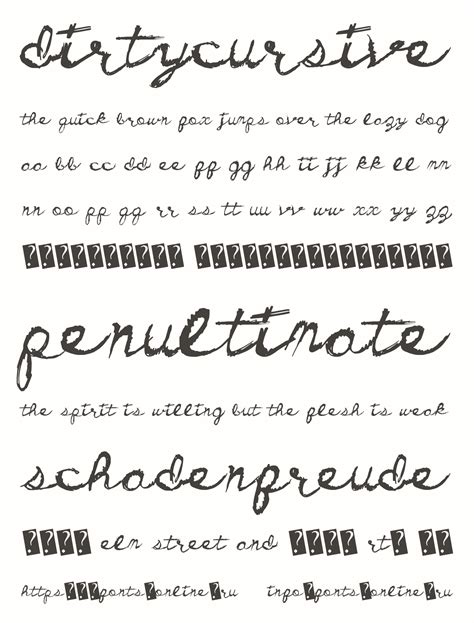 dirtycursive
the quick brown fox jumps over the lazy dog
aa bb cc dd ee ff gg hh ii jj kk ll mm
nn oo pp qq rr ss tt uu vv ww xx yy zz
?????????? ????????????????
penultimate
the spirit is willing but the flesh is weak
schadenfreude
???? elm street and ???? rt? ??
https???fonts?online?ru info?fonts?online?ru